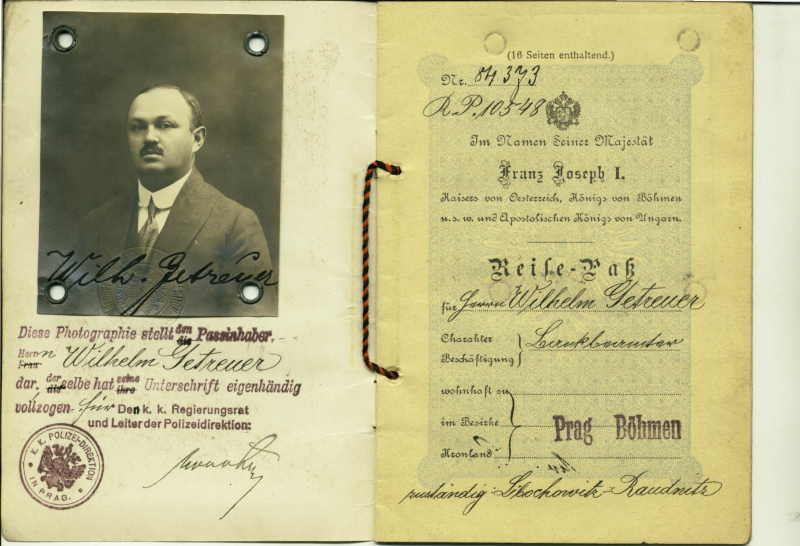 Wilh. Getreuer
Diese Photographie stellt den die Passinhaber.
Herrn Frau Wilhelm Getreuer
dar, der die selbe hat seine ihre Unterschrift eigenhändig
vollzogen. Für Den k. k. Regierungsrat
und Leiter der Polizeidirektion:
K. K. POLIZEI-DIREKTION
IN PRAG.
(16 Seiten enthaltend.)
Nr. 84373
R.P. 10548
Im Namen Seiner Majestät
Franz Joseph I.
Kaisers von Oesterreich, Königs von Böhmen
u. s. w. und Apostolischen Königs von Ungarn.
Reise-Paß
für Herrn Wilhelm Getreuer
Charakter
Beschäftigung } Bankbeamter
wohnhaft zu
im Bezirke
Prag Böhmen
Kronland
zuständig: Libochowitz - Raudnitz